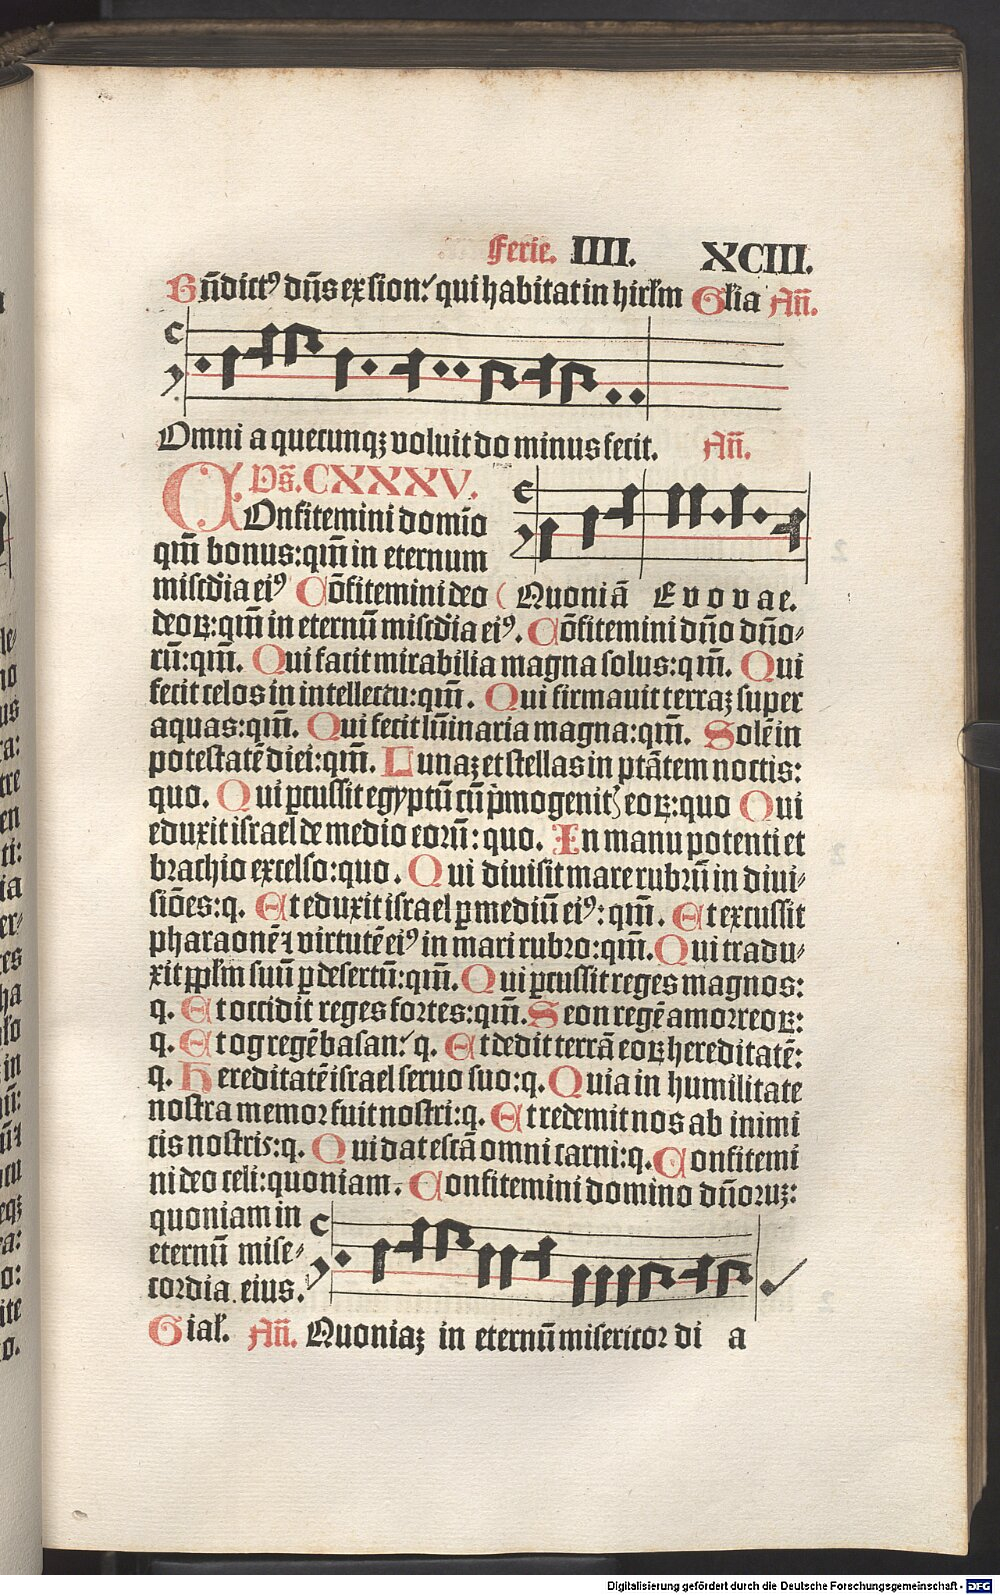 Ferie. IIII. XCIII.
Bn̄dict⁹ dn̄s ex sion: qui habitat in hirl̄m Gl̄ia An̄.
Omni a quecunqꝫ voluit do minus fecit. An̄.
Ps̄. CXXXV.
COnfitemini domīo
qm̄ bonus: qm̄ in eternum
misc̄dia ei⁹ Cōfitemini deo ( Quoniā E v o v a e.
deoꝝ: qm̄ in eternū misc̄dia ei⁹. Cōfitemini dn̄o dn̄o⸗
rū: qm̄. Qui facit mirabilia magna solus: qm̄. Qui
fecit celos in intellectu: qm̄. Qui firmauit terraꝫ super
aquas: qm̄. Qui fecit lūinaria magna: qm̄. Solē in
potestatē diei: qm̄. Lunaꝫ et stellas in ptātem noctis:
quo. Qui ꝑcussit egyptū cū pͥmogenitꝭ eoꝝ: quo Qui
eduxit israel de medio eorū: quo. In manu potenti et
brachio excelso: quo. Qui diuisit mare rubrū in diui⸗
siōes: q. Et eduxit israel ꝑ mediū ei⁹: qm̄. Et excussit
pharaonē ⁊ virtutē ei⁹ in mari rubro: qm̄. Qui tradu⸗
xit ppl̄m suū ꝑ desertū: qm̄. Qui ꝑcussit reges magnos:
q. Et occidit reges fortes: qm̄. Seon regē amorreoꝝ:
q. Et og regē basan: q. Et dedit terrā eoꝝ hereditatē:
q. Hereditatē israel seruo suo: q. Quia in humilitate
nostra memor fuit nostri: q. Et redemit nos ab inimi
cis nostris: q. Qui dat escā omni carni: q. Confitemi
ni deo celi: quoniam. Confitemini domino dn̄oruꝫ:
quoniam in
eternū mise⸗
cordia eius.
Glal. An̄. Quoniaꝫ in eternū misericor di a
Digitalisierung gefördert durch die Deutsche Forschungsgemeinschaft - DFG